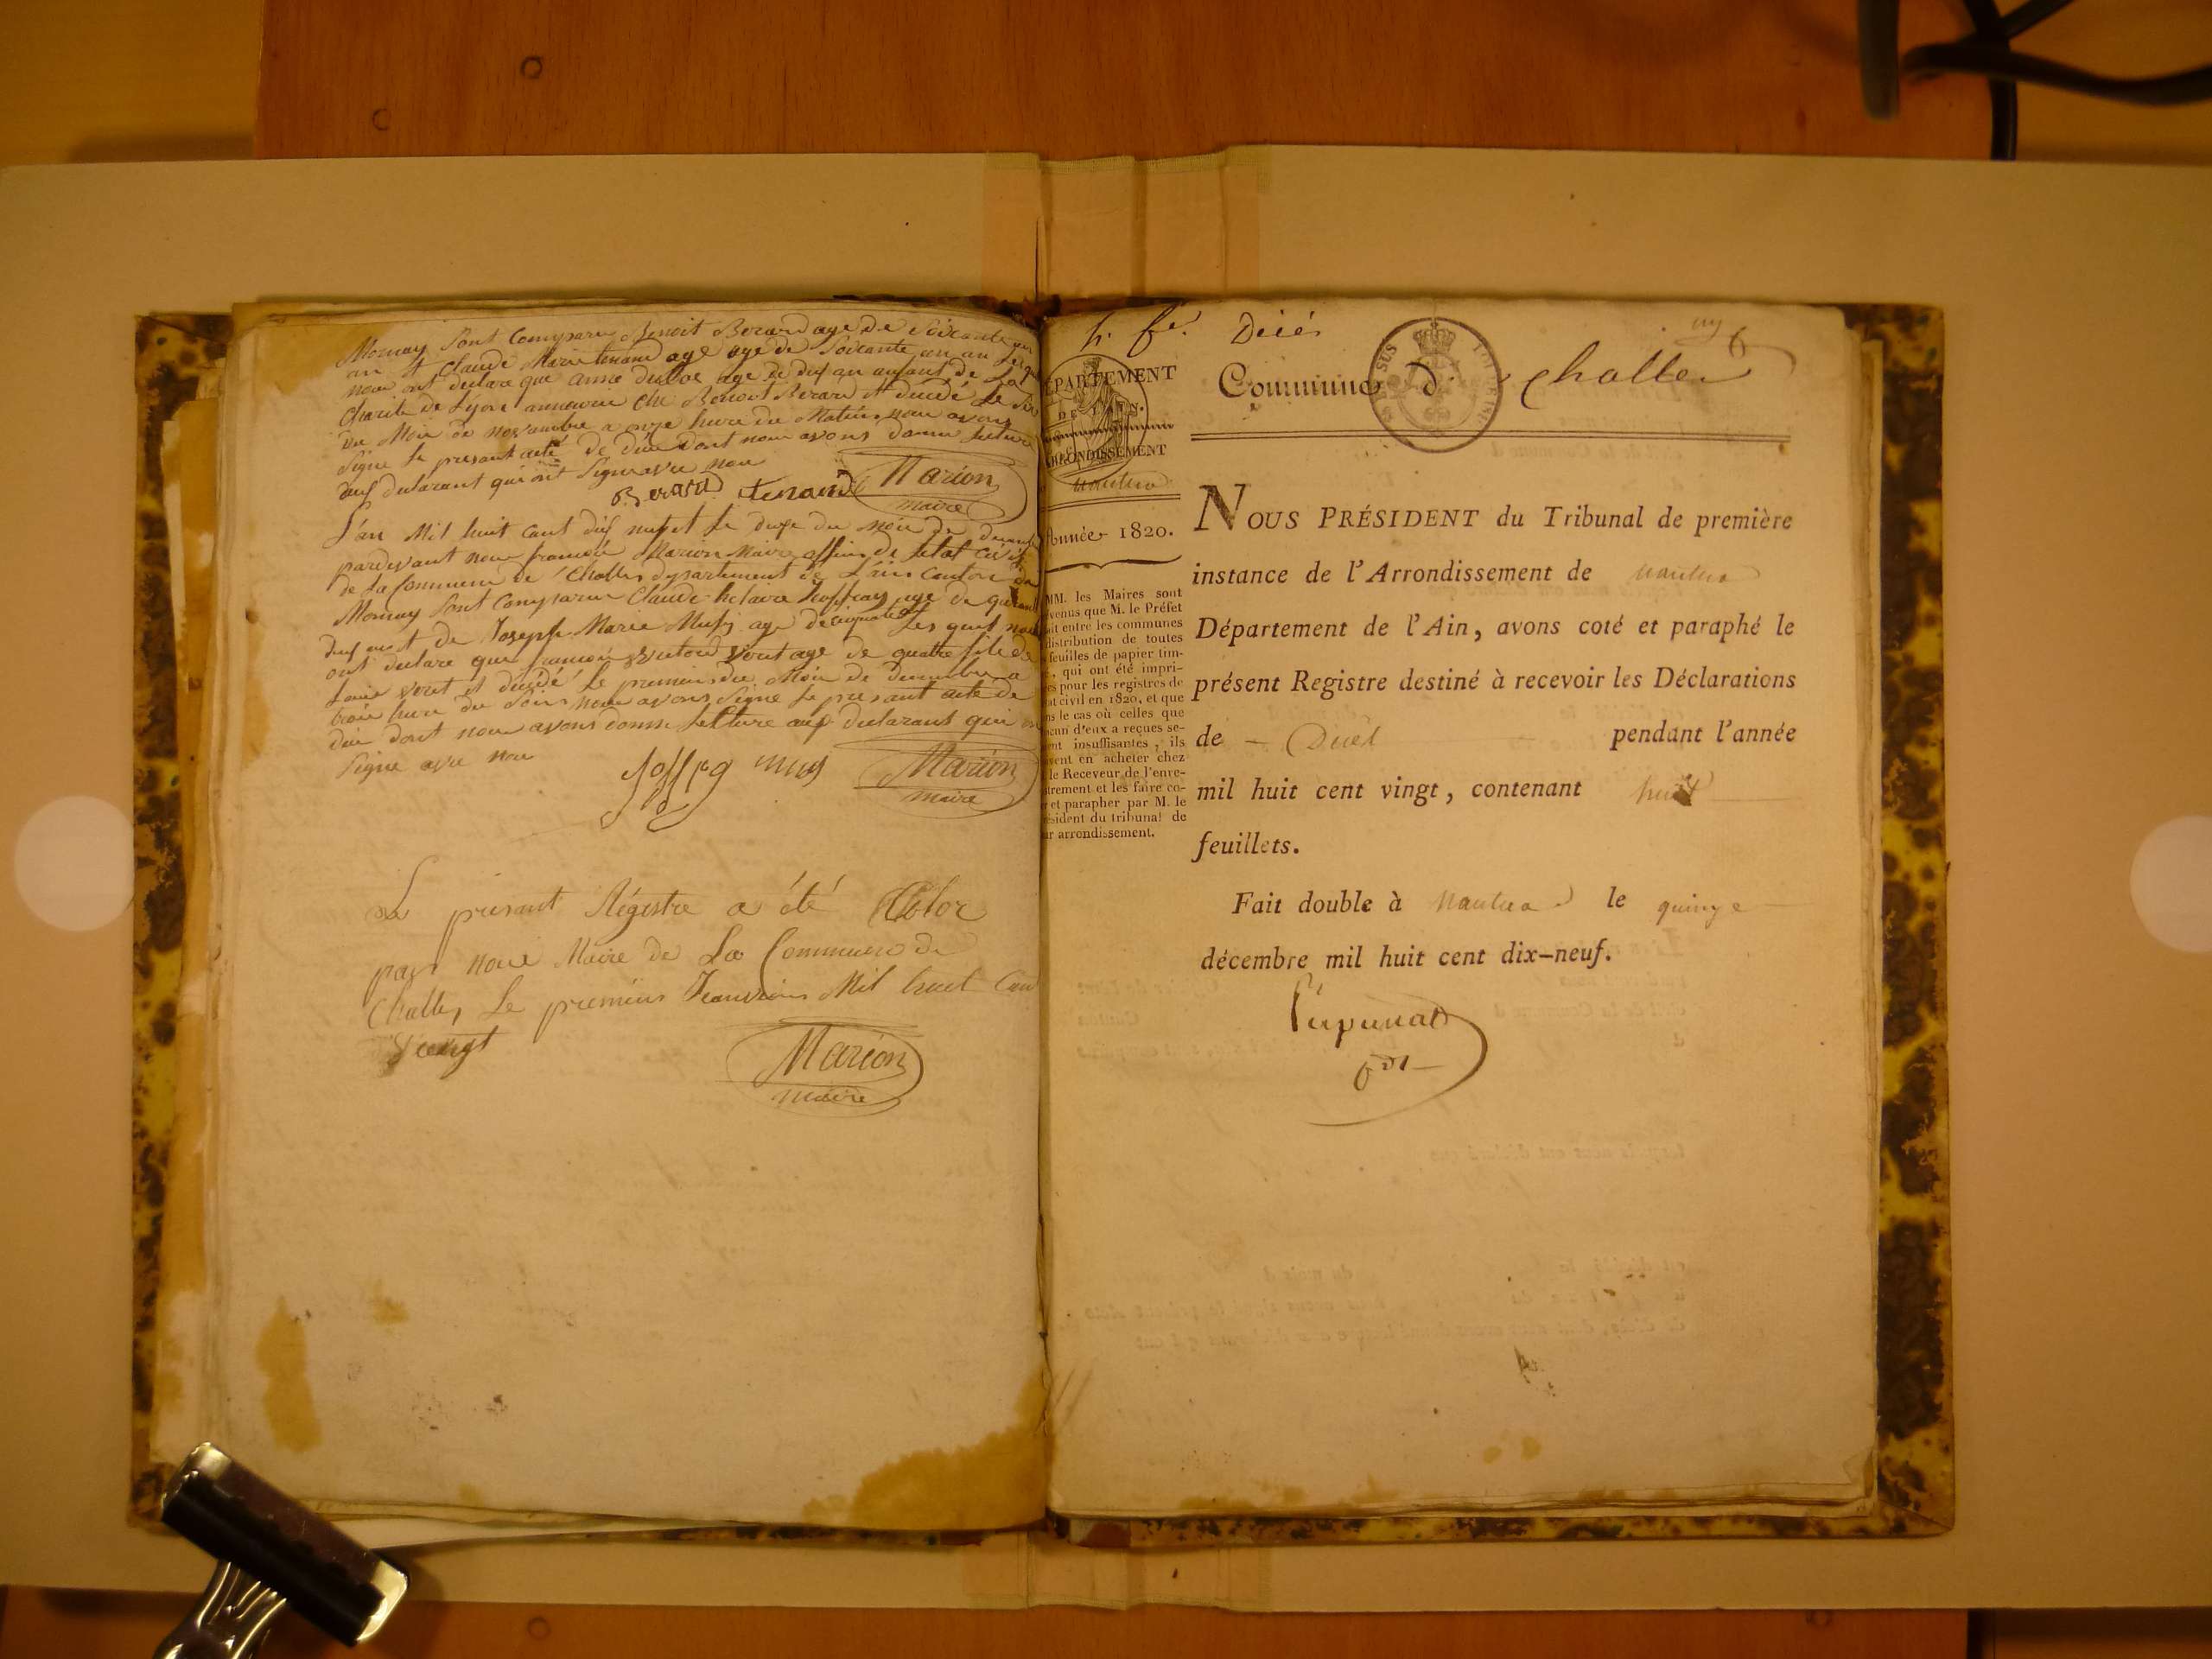 Mornay Sont Comparu Benoit Berard age de Soixante un
an et Claude Marie tenand age age de Soixante un an Les quel
nous ont declare que anne age de dix an anfant de La
Charite de Lyon annourice ché Benoit Berard et décédé Le Six
du Mois de novambre a onze heure du Matin nous avons
Signe Le presant acte de déce Dont nous avons donné Lecture
aux declarant qui ont Signe avec nou
Berard tenand Marion
maire
L'an Mil huit Cant dix neuf et Le duze du mois de decembre
pardevant nous francois Marion Maire officier de Letat civil
de La Commune de Challes departement de L'ain Canton de
Mornay Sont Comparu Claude hilaire Joffray age de quarante
deux ans et de Joseph Marie Musy age de cinquante Les quels nous
ont declare que francois voret age de quatre fils de
Louis voret et décédé Le premier du Mois de Decembre a
trois heure du Soir nous avons Signe Le presant acte de
déce dont nous avons donné Lecture aux declarant qui on
Signe avec nou
Joffrey musy Marion
maire
Le présant Régistre a été Clos
par nous Maire de La Commune de
Challes Le premier Janvier Mil huit Cen
vingt
Marion
maire
Décès
6
DÉPARTEMENT
DE L'AIN.
ARRONDISSEMENT
Nantua
Année 1820.
MM. les Maires sont
venus que M. le Préfet
ait entre les communes
distribution de toutes
feuilles de papier tim-
, qui ont été impri-
es pour les registres de
at civil en 1820, et que
ns le cas où celles que
acun d'eux a reçues se-
ent insuffisantes, ils
ivent en acheter chez
le Receveur de l'enre-
trement et les faire co-
r et parapher par M. le
ésident du tribunal de
ur arrondissement.
Commune d challes
NOUS PRÉSIDENT du Tribunal de première
instance de l'Arrondissement de Nantua
Département de l'Ain, avons coté et paraphé le
présent Registre destiné à recevoir les Déclarations
de - Décès pendant l'année
mil huit cent vingt, contenant huit
feuillets.
Fait double à Nantua le quinze
décembre mil huit cent dix-neuf.